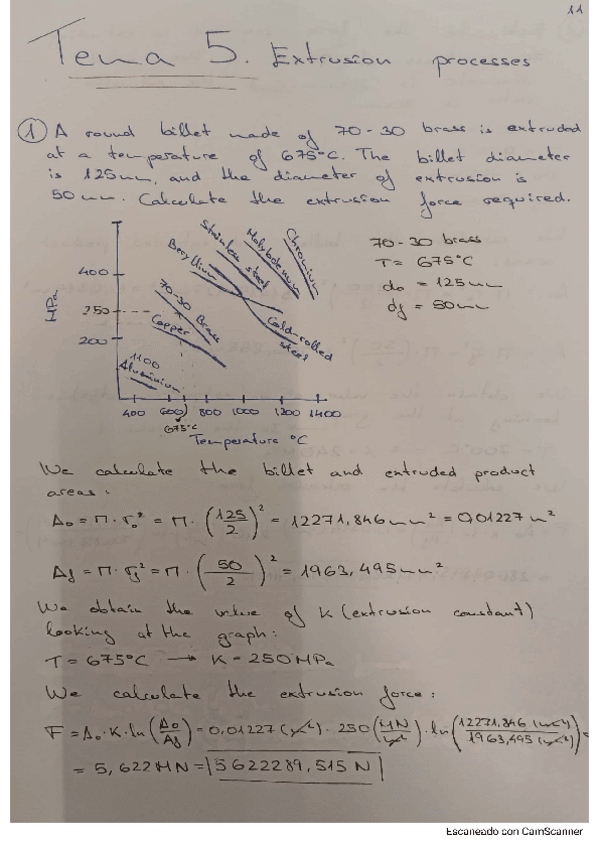 11
Tema 5. Extrusion processes
① A round billet made of 70-30 brass is extruded
at a temperature of 675°C. The billet diameter
is 125mm, and the diameter of extrusion is
50mm. Calculate the extrusion force required.
70-30 brass
T = 675°C
do = 125mm
df = 50mm
MPa
400
250
200
Chromium
Molybdenum
Stainless steel
Beryllium
70-30 Brass
Copper
Cold-rolled
steel
1100
Aluminium
400 600 800 1000 1200 1400
675°C
Temperature °C
We calculate the billet and extruded product
areas:
Ao = π · ro² = π · (125/2)² = 12271,846mm² = 0,01227m²
Af = π · rf² = π · (50/2)² = 1963,495mm²
We obtain the value of K (extrusion constant)
looking at the graph:
T = 675°C → K = 250MPa
We calculate the extrusion force:
F = Ao · K · ln(Ao/Af) = 0,01227 (m²) · 250 (MN/m²) · ln(12271,846 (mm²)/1963,495 (mm²)) =
= 5,622MN = 5622289,515 N
Escaneado con CamScanner